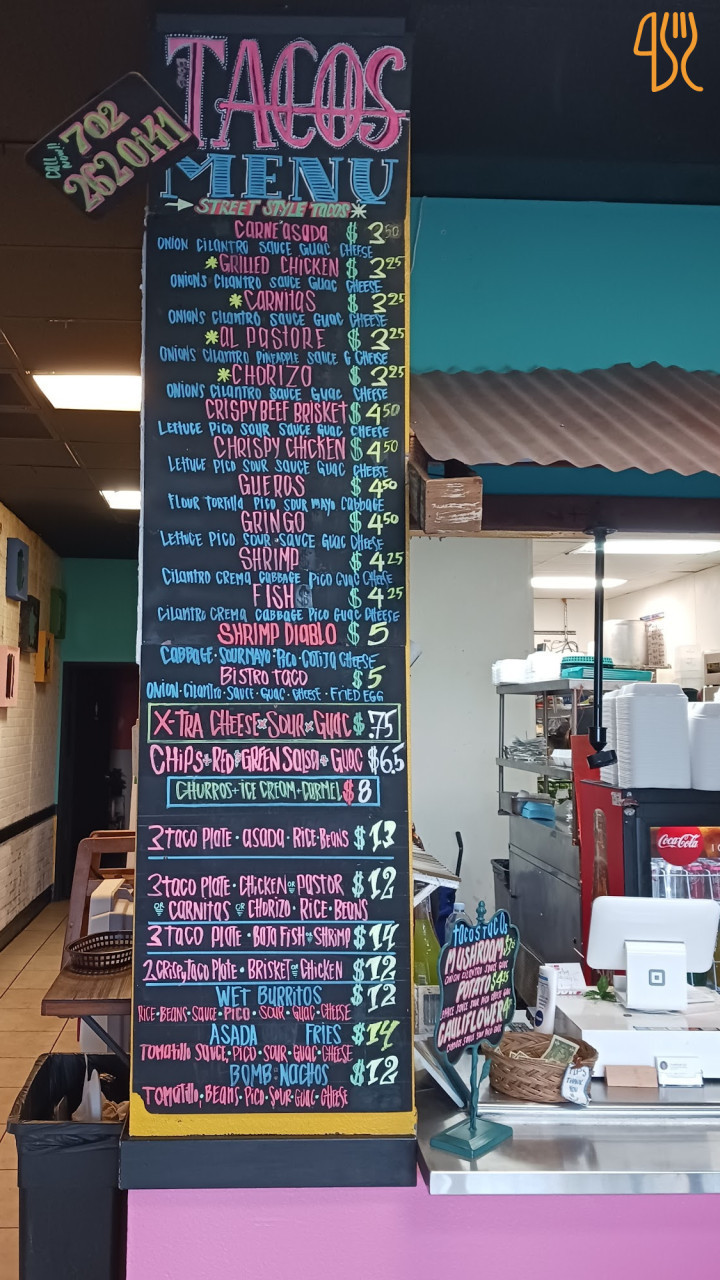 THE
TACOS
MENU
CALL NOW!!
702
262 0iK1
STREET STYLE TACOS
CARNE ASADA $3.50
ONION CILANTRO SAUCE GUAC CHEESE
*GRILLED CHICKEN $3.25
ONIONS CILANTRO SAUCE GUAC CHEESE
*CARNITAS $3.25
ONIONS CILANTRO SAUCE GUAC CHEESE
*AL PASTORE $3.25
ONIONS CILANTRO PINEAPPLE SAUCE G CHEESE
*CHORIZO $3.25
ONIONS CILANTRO SAUCE GUAC CHEESE
CRISPY BEEF BRISKET $4.50
LETTUCE PICO SOUR SAUCE GUAC CHEESE
CHRISPY CHICKEN $4.50
LETTUCE PICO SOUR SAUCE GUAC CHEESE
GUEROS $4.50
FLOUR TORTILLA PICO SOUR MAYO CABBAGE
GRINGO $4.50
LETTUCE PICO SOUR SAUCE GUAC CHEESE
SHRIMP $4.25
CILANTRO CREMA CABBAGE PICO GUAC CHEESE
FISH $4.25
CILANTRO CREMA CABBAGE PICO GUAC CHEESE
SHRIMP DIABLO $5
CABBAGE·SOURMAYO·PICO·COTIJA CHEESE
BISTRO TACO $5
ONION·CILANTRO·SAUCE·GUAC·CHEESE·FRIED EGG
X-TRA CHEESE SOUR GUAC $.75
CHIPS+RED+GREEN SALSA+GUAC $6.5
CHURROS+ICE CREAM+CARMEL $8
3 TACO PLATE·ASADA·RICE·BEANS $13
3 TACO PLATE·CHICKEN OR PASTOR $12
OR CARNITAS OR CHORIZO·RICE·BEANS
3 TACO PLATE·BAJA FISH OR SHRIMP $14
2 CRISP TACO PLATE·BRISKET OR CHICKEN $12
WET BURRITOS $12
RICE·BEANS·SAUCE·PICO·SOUR·GUAC·CHEESE
ASADA FRIES $14
TOMATILLO SAUCE, PICO·SOUR·GUAC·CHEESE
BOMB NACHOS $12
TOMATILLO, BEANS, PICO·SOUR·GUAC·CHEESE
MUSHROOM
ONION CILANTRO SAUCE GUAC
POTATO
CAULIFLOWER
Coca-Cola
TIPS
THANK
YOU